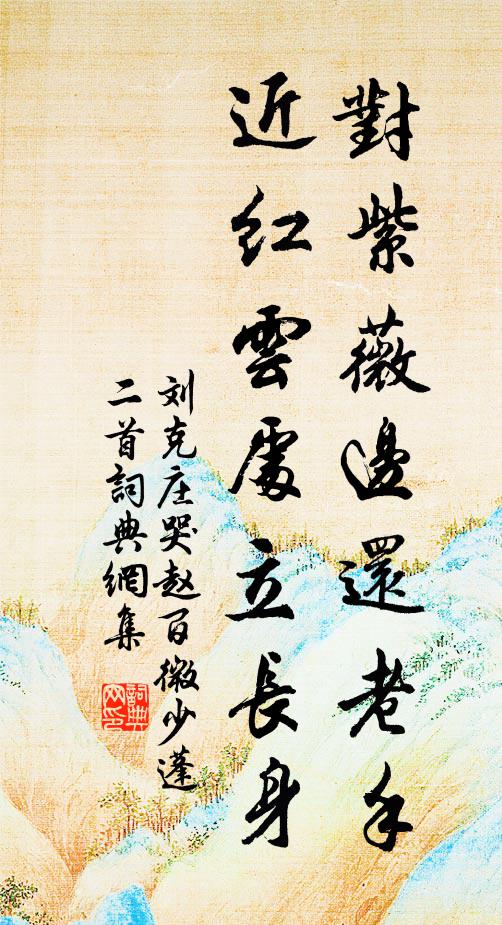 對紫薇邊還老手
近紅雲處立長身
刘克庄哭赵百微少蓬
二首詞典網集
詞典网印